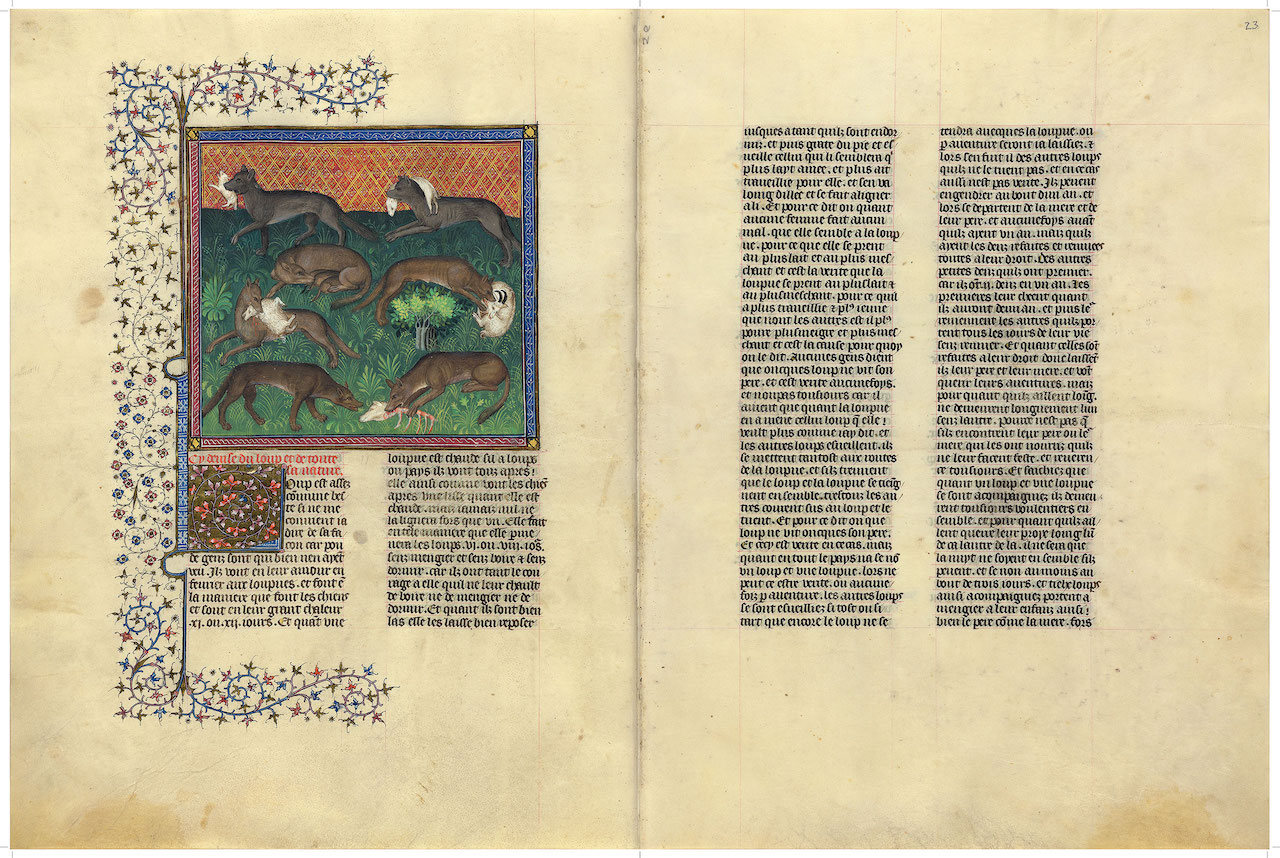 Cy deuise du loup et de toute
sa nature.
Loup est assez
commune bes
te si ne me
conuient ia
dire de sa fa
con car pou
de genz sont qui bien nen ayet
veu. Ilz vont en leur amour en
feurier aux loupues. et font e
la maniere que font les chiens
et sont en leur grant chaleur
.xj. ou .xij. iours. Et quat vne
loupue est chaude sil a loups
ou pays ilz vont touz apres
elle ainsi comme vont les chies
apres vne lisse quant elle est
chaude. mais iamais nul ne
la lignera fors que vn. Elle fait
en tele maniere que elle pme
nera les loups .vj. ou .viij. ios.
senz mengier et senz boire & senz
dormir. car ilz ont tant le cou
rage a elle quil ne leur chault
de boire ne de mengier ne de
dormir. Et quant ilz sont bien
las elle les laisse bien reposer
23
iusques a tant quilz sont endor
miz. et puis grate du pie et es
ueille cellui qui li semblera q
plus layt amee. et plus ait
traueillie pour elle. et sen va
loing dillec et se fait aligner
a li. Et pour ce dit on quant
aucune femme fait aucun
mal. que elle semble a la loup
ue. pour ce que elle se prent
au plus lait et au plus mes
chant et cest la verite que la
loupue se prent au plus lait &
au plus meschant. pour ce quil
a plus traueillie & pl9 ieune
que nont les autres est il pl9
poure plus meigre et plus mes
chant et cest la cause pour quoy
on le dit. Aucunes gens dient
que oncques loup ne vit son
pere. et cest verite aucunefoys.
et non pas tousiours car il
auient que quant la loupue
en a mene cellui loup q elle
veult plus comme iay dit. et
les autres loups esueillent. ilz
se mettent tantost aux routes
de la loupue. et silz treuuent
que le loup et la loupue se tieig
nent ensemble. trestouz les au
tres courent sus au loup et le
tuent. Et pour ce dit on que
loup ne vit oncques son pere.
Et cecy est verite en ce cas. maiz
quant en tout le pays na se no
vn loup et vne loupue. lors ne
peut ce estre verite. ou aucune
foiz p auenture. les autres loups
se sont esueilliez si tost ou si
tart que encore le loup ne se
tendra auecques la loupue. ou
p auenture seront ia laissiez. &
lors sen fuit il des autres loups
quilz ne le tuent pas. et en ce cas
aussi nest pas verite. Ilz peuent
engendrer au bout dun an. et
lors se departent de la mere et de
leur pere. et aucunefoys auant
quilz ayent vn an. mais quilz
ayent les denz refaites et reuenues
toutes a leur droit. Des autres
petites denz quilz ont premier.
car ilz ont .ij. denz en vn an. Les
premieres leur cheent quant
ilz auront demi an. et puis le
reuiennent les autres quilz por
tent touz les iours de leur vie
senz remuer. Et quant celles sot
refaites a leur droit donc laissent
ilz leur pere et leur mere. et vot
querir leurs auentures. maiz
pour quant quilz aillent loing.
ne demeurent longuement lun
senz lautre. pource nest pas q
silz encontrent leur pere ou le
mere qui les ont nourriz quilz
ne leur facent feste. et reueren
ce tousiours. Et sachiez que
quant vn loup et vne loupue
se sont acompaigniez ilz demeu
rent tousiours voulentiers en
semble. et pour quant quilz ail
lent querir leur proye loing lun
de ca lautre de la. il ne sera que
la nuyt ne soyent ensemble silz
peuent. et se non au moins au
bout de trois iours. et tielx loups
ainsi acompaigniez portent a
mengier a leur enfanz ainsi
bien le pere come la mere. fors